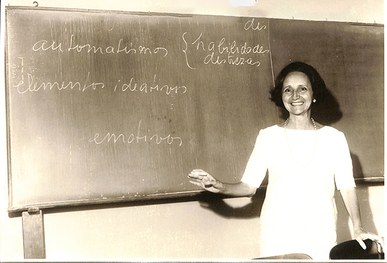 des
automatismos { habilidades
destrezas
elementos ideativos
emotivos